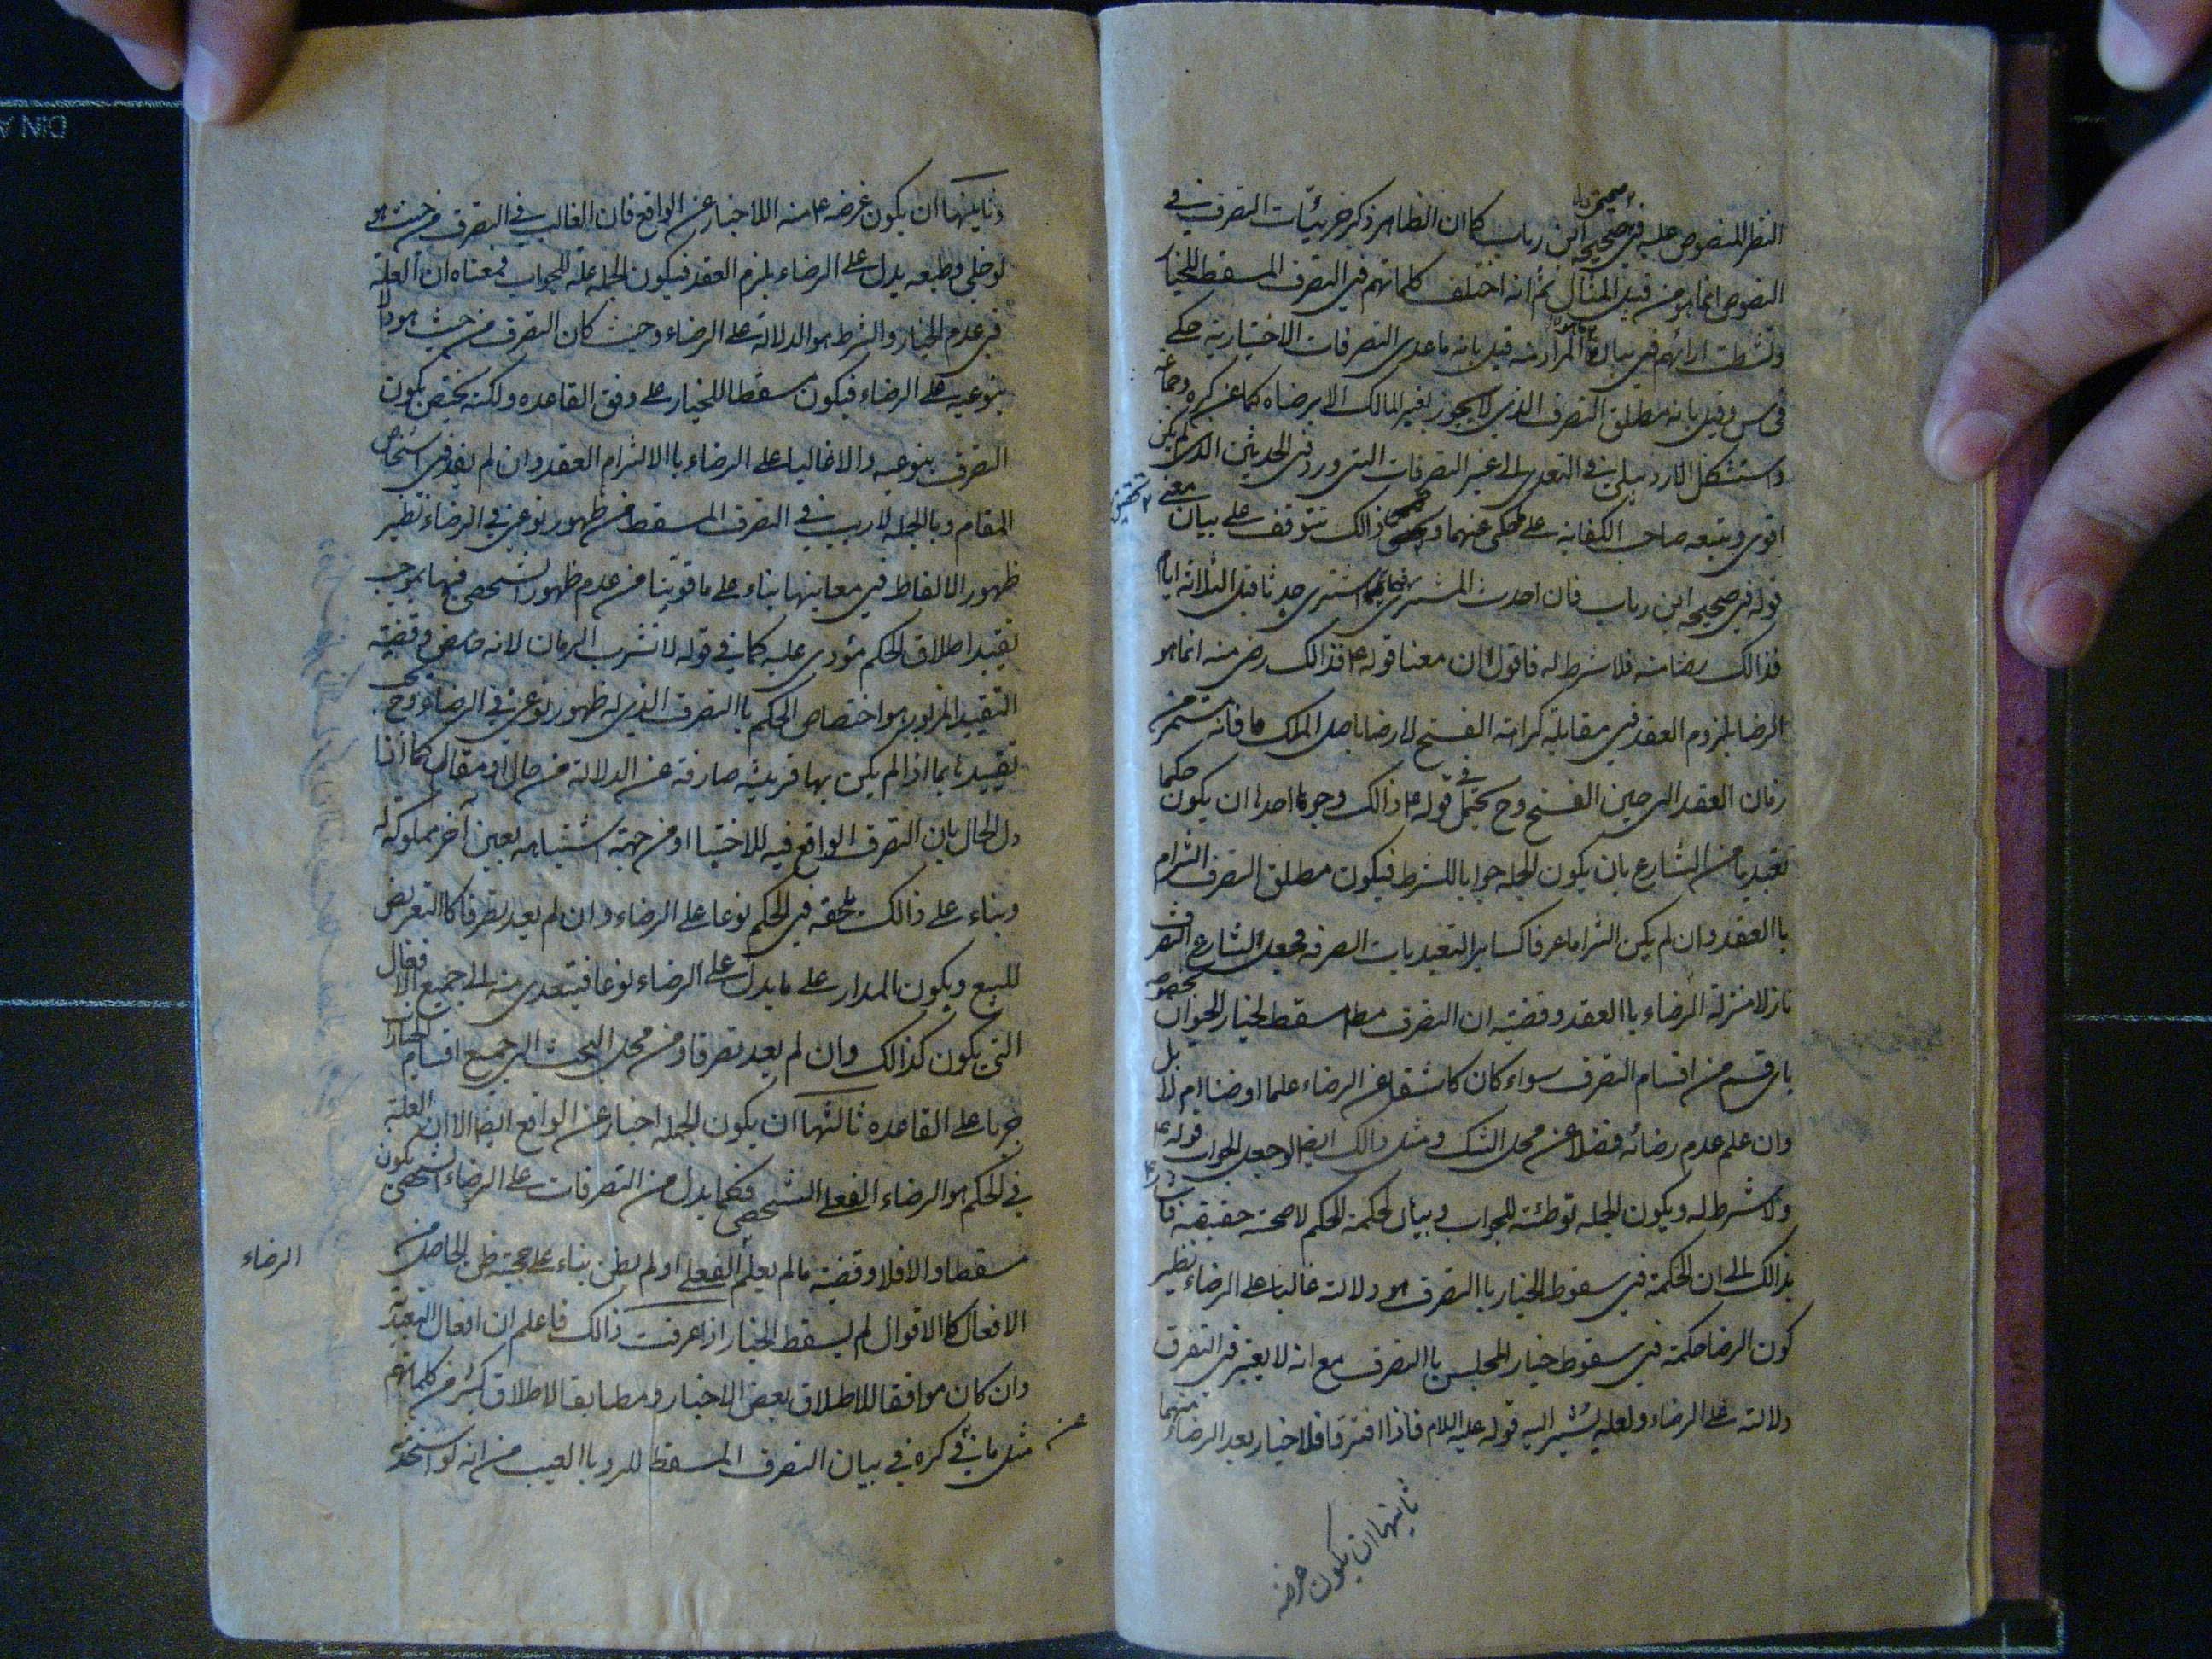 النظر المنصوص عليه في صحيحة ابن رباب كما ان الظاهر ذكر جزئيات التصرف في
النصوص انما هو من قبيل المثال ثم انه اختلف كلماتهم في التصرف المسقط للخيار
وتشطت ارائهم في بيان المراد منه قيل بانه ماعدى التصرفات الاختيارية حكى
في س وقيل بانه مطلق التصرف الذي لا يجوز لغير المالك الا برضاه كما عن كره وجماعة
واستشكل الاردبيلي في التعدي الى غير التصرفات التي ورد في الحديث الذي لم يكن
اقوى وتبعه صاحب الكفاية على محكي عنهما وتحقيق ذالك تتوقف على بيان معنى
قوله في صحيحه ابن رباب فان احدث المشتري فيما اشترى حدثا قبل الثلاثة ايام
فذالك رضا منه فلا شرط له فاقول ان معنا قوله ع فذالك رضى منه انما هو
الرضا بلزوم العقد في مقابلة كراهة الفسخ لا رضا باصل الملك فانه مستمر من
زمان العقد الى حين الفسخ وح يحتمل في قوله ع ذالك وجوها احدها ان يكون حكما
تعبديا من الشارع بان يكون الجملة جوابا للشرط فيكون مطلق التصرف التزام
با العقد وان لم يكن التزاما عرفا كساير التعبديات الصرفه فجعل الشارع التصرف
نازلا منزلة الرضاء با العقد وقضيته ان التصرف مط مسقط لخيار الحيوان بخصوصه
باى قسم من اقسام التصرف سواء كان كاشفا عن الرضاء علما او ضنا ام لا بل
وان علم عدم رضائه فضلا عن محل الشك ومثل ذالك ايضا لو جعل الجواب قوله ع
ولا شرط له ويكون الجملة توطئة للجواب وبيان لحكمة الحكم لا صحة حقيقية فاشار ع
بذالك الى ان الحكمة في سقوط الخيار با التصرف هو دلالته غالبا على الرضاء نظير
كون الرضا حكمة في سقوط خيار المجلس با التصرف مع انه لا يعتبر في التفرق
دلالته على الرضاء ولعله يشير اليه قوله عليه السلام فاذا افترقا فلا خيار بعد الرضاء منهما
ثانيها ان يكون غرضه
وثانيها ان يكون غرضه ع منه الاخبار عن الواقع فان الغالب في التصرف من حيث هو
لو خلي وطبعه يدل على الرضاء بلزم العقد فيكون الجملة علة للجواب فمعناه ان العلة
في عدم الخيار والشرط هو الدلالة على الرضاء وحيث كان التصرف من حيث هو دالا
بنوعيه على الرضاء فيكون مسقطا للخيار على وفق القاعده ولكنه يختص بكون
التصرف بنوعيه دالا غالبا على الرضاء با الالتزام العقد وان لم يفد في اشخاص
المقام وبا الجملة لا ريب في التصرف المسقط من ظهور نوعي في الرضاء نظير
ظهور الالفاظ في معانيها بناء على ما قوينا من عدم ظهور الشخصي فيها بموجب
تقييد اطلاق الحكم مؤدى عليه كما في قوله لا تشرب الرمان لانه حامض وقضية
التقييد المزبور هو اختصاص الحكم با التصرف الذي له ظهور نوعي في الرضاء وح يجب
تقييده بما اذا لم يكن بها قرينة صارفة عن الدلالة من حال او مقال كما اذا
دل الحال بان التصرف الواقع فيه للاختبا او من جهة اشتباهه بعين آخر مملوكة له
وبناء على ذالك يلحقه في الحكم نوعا على الرضاء وان لم يعد تصرفا كا التعريض
للبيع ويكون المدار على ما يدل على الرضاء نوعا فيتعدى منه الى جميع الافعال
التي يكون كذالك وان لم يعد تصرفا ومن محل البحث الى جميع اقسام الخيار
جريا على القاعده ثالثها ان يكون الجملة اخبار عن الواقع ايضا الا ان العلة
في الحكم هو الرضاء الفعلى الشخصي فكما يدل من التصرفات على الرضاء الشخصي يكون
مسقطا والا فلا وقضية ما لم يعلم الفعلى او لم يظن بناء على حجية ظن الحاصل من
الرضاء
الافعال كا الاقوال لم يسقط الخيار اذا عرفت ذالك فاعلم ان افعال التعبدية
وان كان موافقا للاطلاق بعض الاخبار ومطابقا لاطلاق كثير من كلماتهم
مثل ما في كره في بيان التصرف المسقط للرد با العيب من انه لو استخدمه